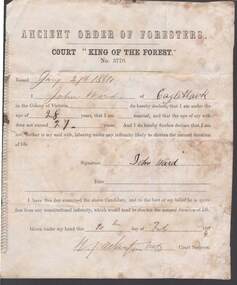 ANCIENT ORDER OF FORESTERS.
COURT "KING OF THE FOREST."
No. 3770.
Dated 27th 188
I John Ward of Eaglehawk
in the Colony of Victoria do hereby declare, that I am under the
age of 28 years, that I am not married, and that the age of my wife
does not exceed 27 years; and I do hereby further declare that I am
not, neither is my said wife, labouring under any infirmity likely to diminish the natural duration
of life.
Signature John Ward
I have this day examined the above Candidate, and to the best of my belief he is quite
free from any constitutional infirmity, which would tend to shorten the natural duration of life.
Given under my hand this day of 188
Court Surgeon.